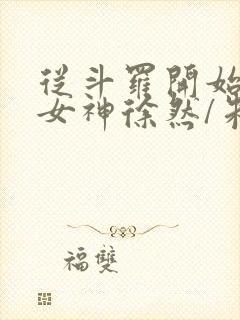 從斗羅開始
女神徐然/朱
福雙